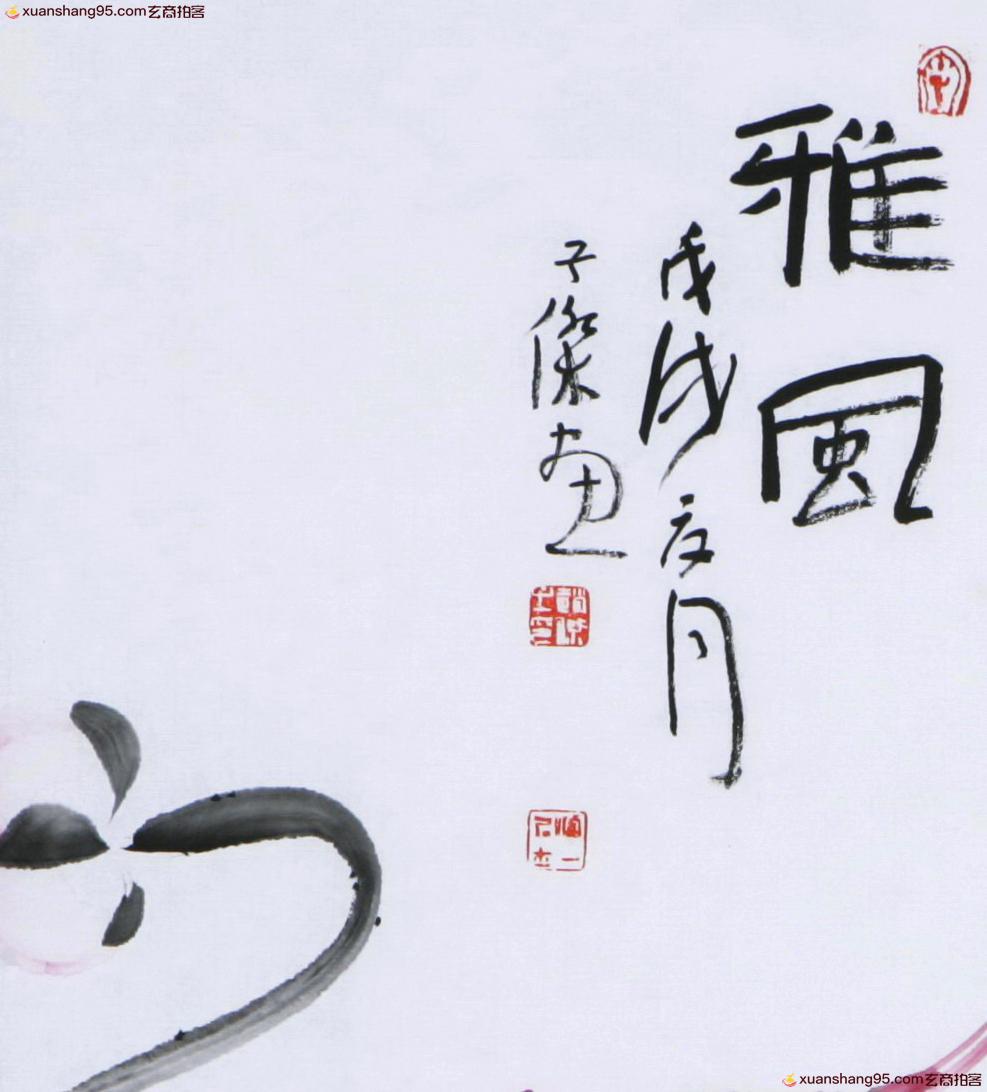 xuanshang95.com玄商拍客
雅風
戊戌夏月
子傑畫
xuanshang95.com玄商拍客